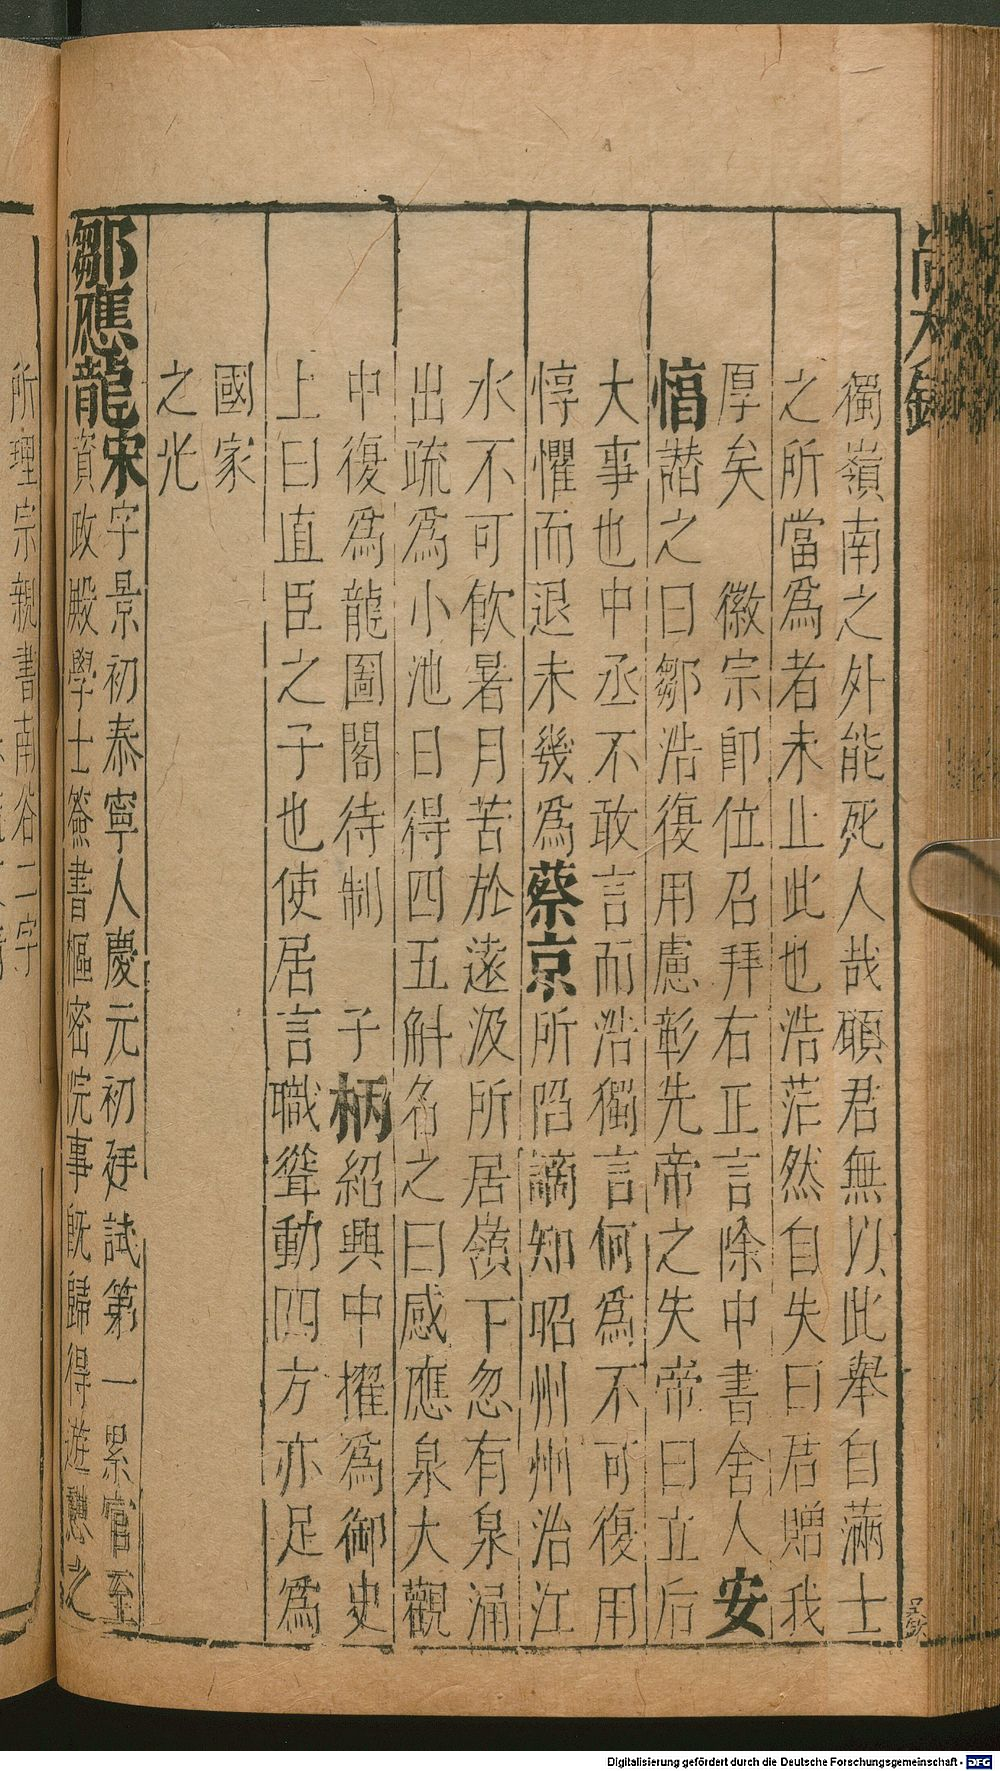 獨嶺南之外能死人哉願君無以此舉自滿士
之所當爲者未止此也浩茫然自失曰君贈我
厚矣　徽宗卽位召拜右正言除中書舍人安
惇譖之曰鄒浩復用慮彰先帝之失帝曰立后
大事也中丞不敢言而浩獨言何爲不可復用
惇懼而退未幾爲蔡京所陷謫知昭州州治江
水不可飲暑月苦於遠汲所居嶺下忽有泉涌
出疏爲小池日得四五斛名之曰感應泉大觀
中復爲龍圖閣待制　子柄紹興中擢爲御史
上曰直臣之子也使居言職聳動四方亦足爲
國家
之光
鄒應龍宋字景初泰寧人慶元初廷試第一累官至
資政殿學士簽書樞密院事旣歸得遊憩之
所理宗親書南谷二字
Digitalisierung gefördert durch die Deutsche Forschungsgemeinschaft - DFG